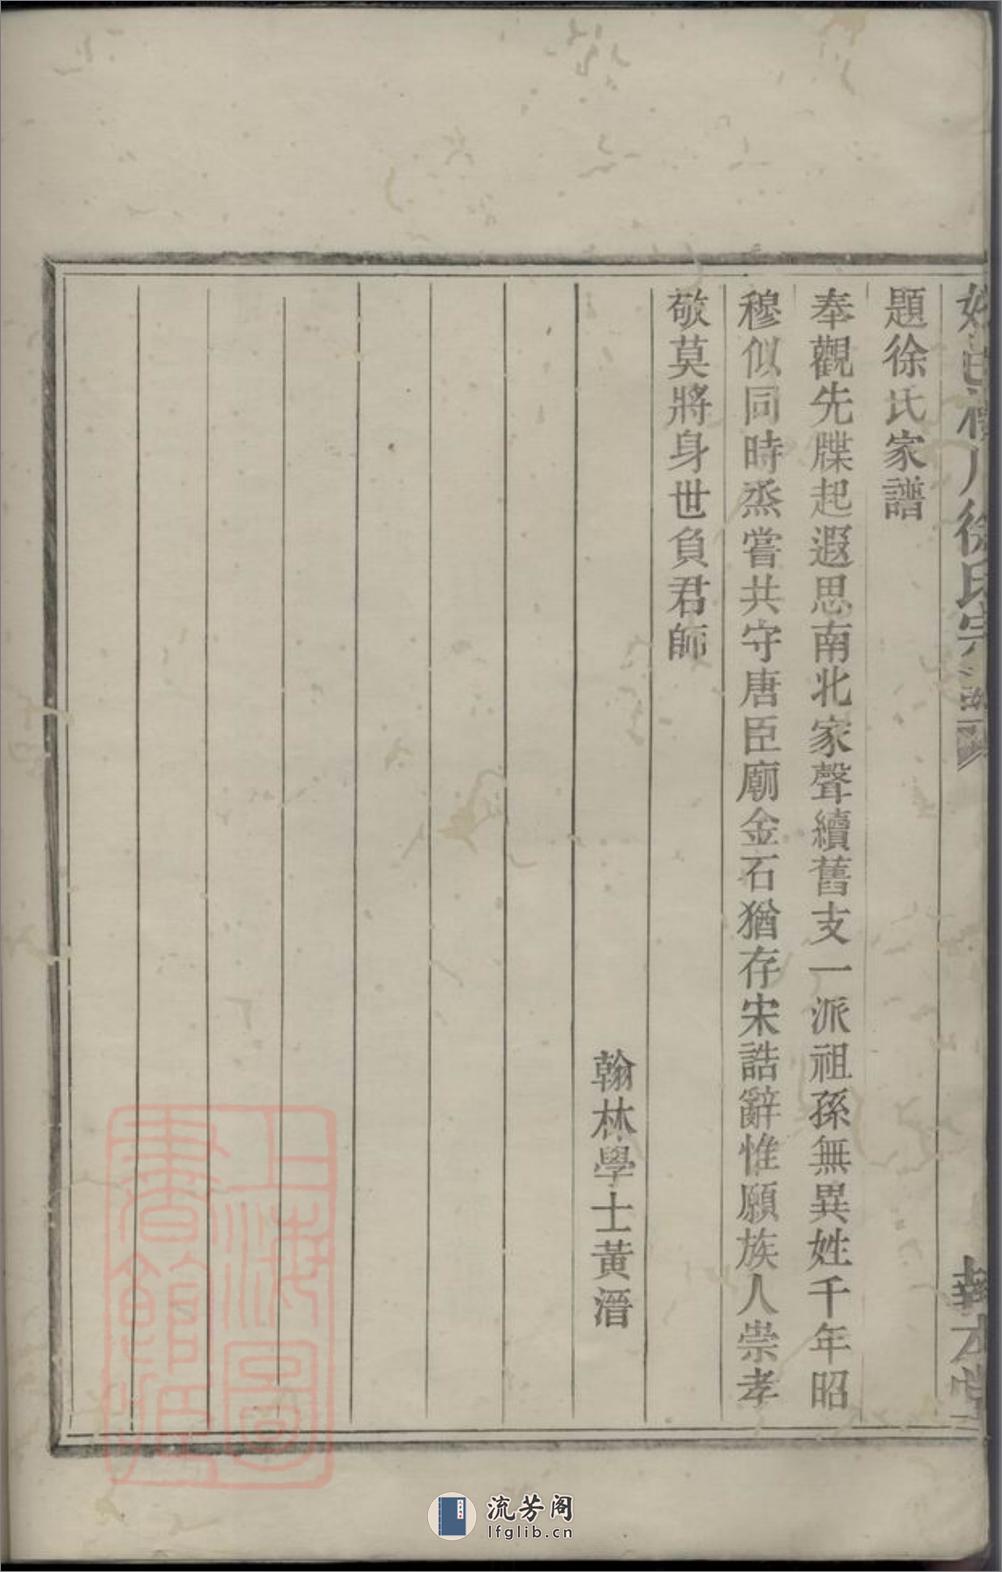 徐氏宗譜
報本堂
題徐氏家譜
奉觀先牒起遐思南北家聲續舊支一派祖孫無異姓千年昭
穆似同時烝嘗共守唐臣廟金石猶存宋誥辭惟願族人崇孝
敬莫將身世負君師
翰林學士黃溍
上海圖
書館藏
流芳阁
lfglib.cn